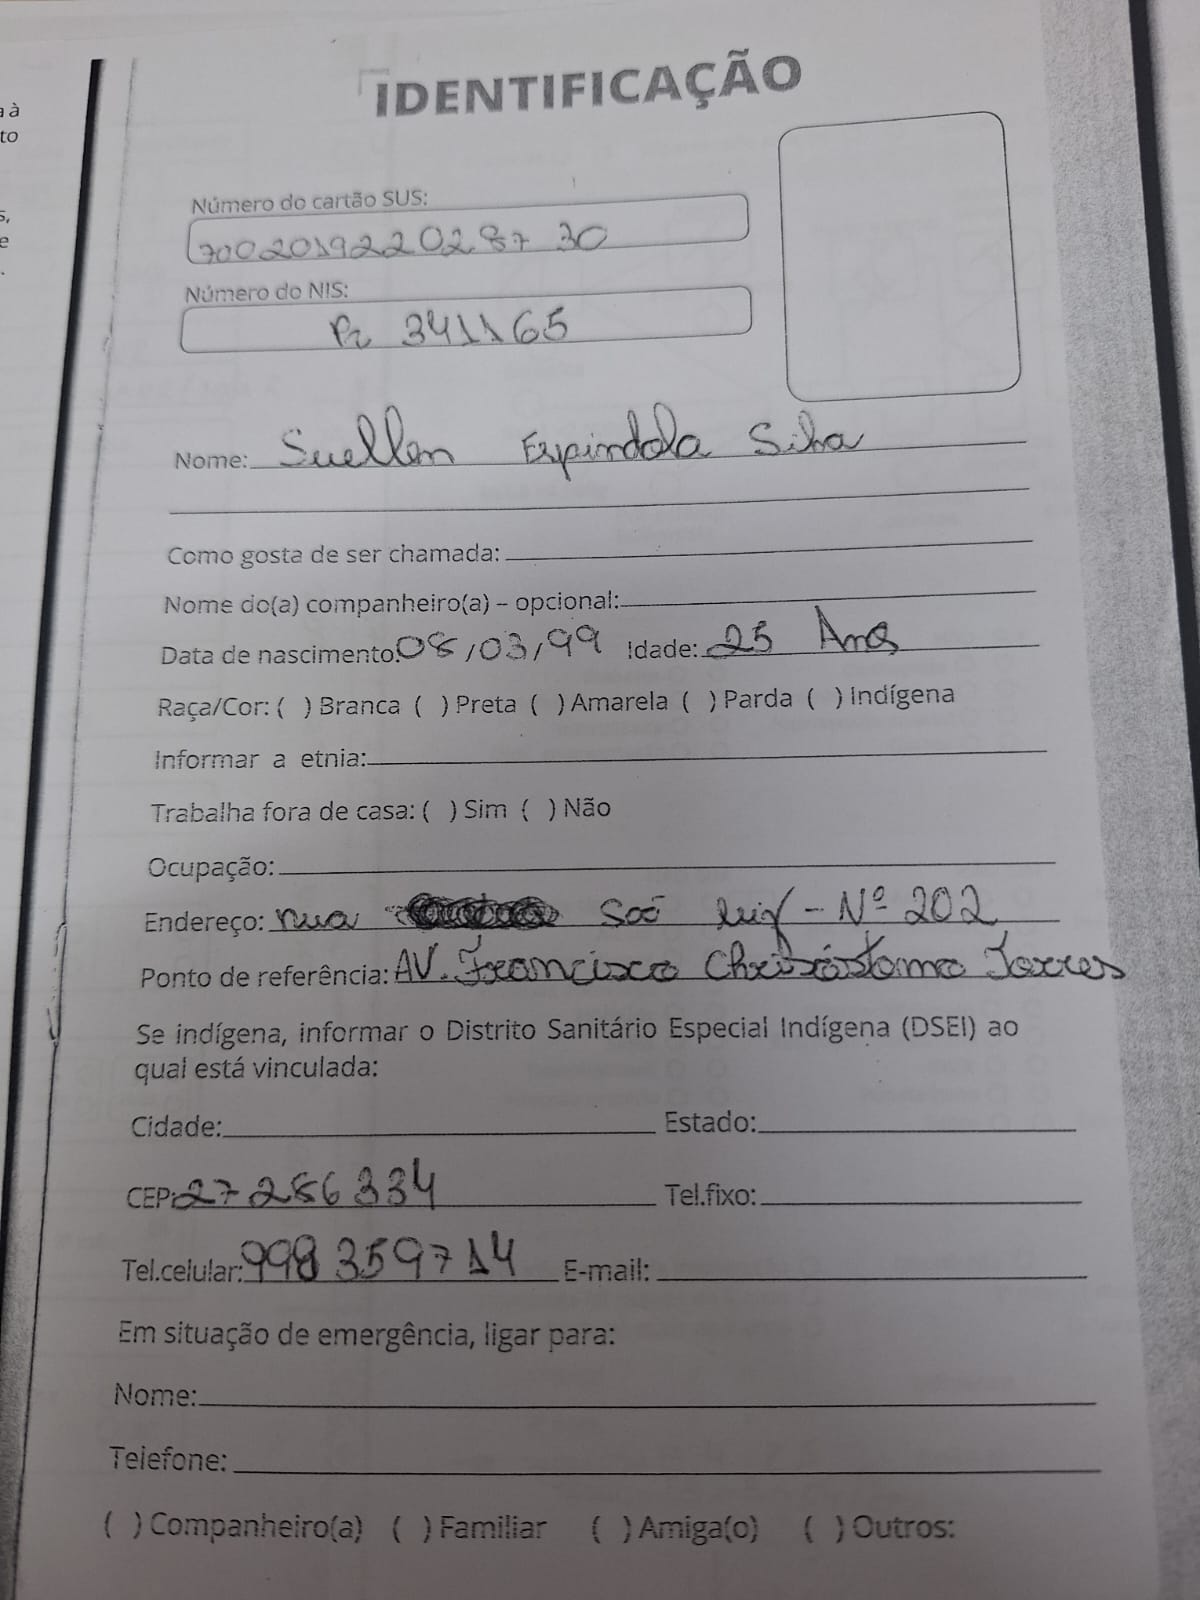 à
to
s,
e
.
IDENTIFICAÇÃO
Número do cartão SUS:
700201922028730
Número do NIS:
Pr 341165
Nome: Suellen Espindola Silva
Como gosta de ser chamada:
Nome do(a) companheiro(a) – opcional:
Data de nascimento: 08/03/99 Idade: 25 Anos
Raça/Cor: ( ) Branca ( ) Preta ( ) Amarela ( ) Parda ( ) Indígena
Informar a etnia:
Trabalha fora de casa: ( ) Sim ( ) Não
Ocupação:
Endereço: rua São luiz - Nº 202
Ponto de referência: AV. Francisco Chrisóstomo Torres
Se indígena, informar o Distrito Sanitário Especial Indígena (DSEI) ao
qual está vinculada:
Cidade: Estado:
CEP: 27286334 Tel.fixo:
Tel.celular: 998359714 E-mail:
Em situação de emergência, ligar para:
Nome:
Telefone:
( ) Companheiro(a) ( ) Familiar ( ) Amiga(o) ( ) Outros: